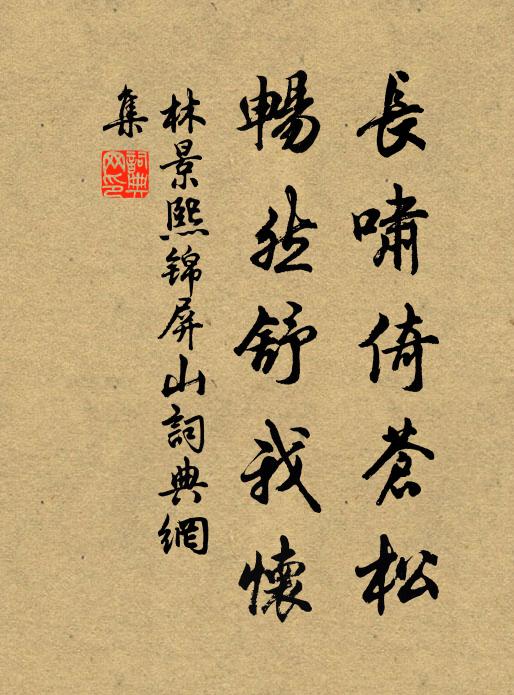 長嘯倚蒼松
暢然舒我懷
林景熙錦屏山詞典網
集
詞典網印